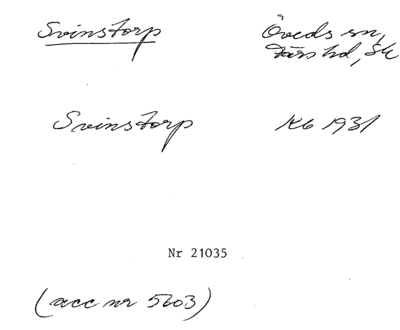 Svinstorp Öveds sn,
Färs hd, Sk
Svinstorp Kb 1931
Nr 21035
(acc nr 5603)